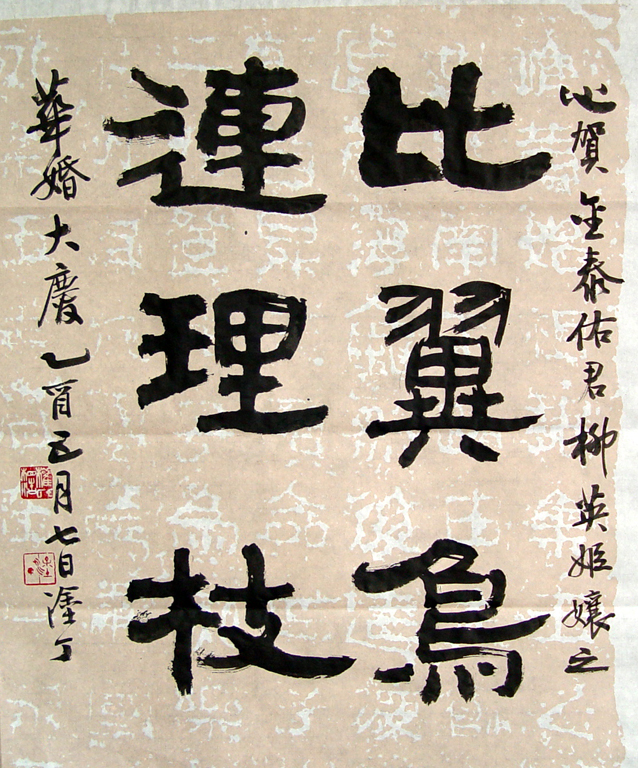 心賀金泰佑君柳英姬孃之
比翼鳥
連理枝
華婚大慶乙酉五月七日